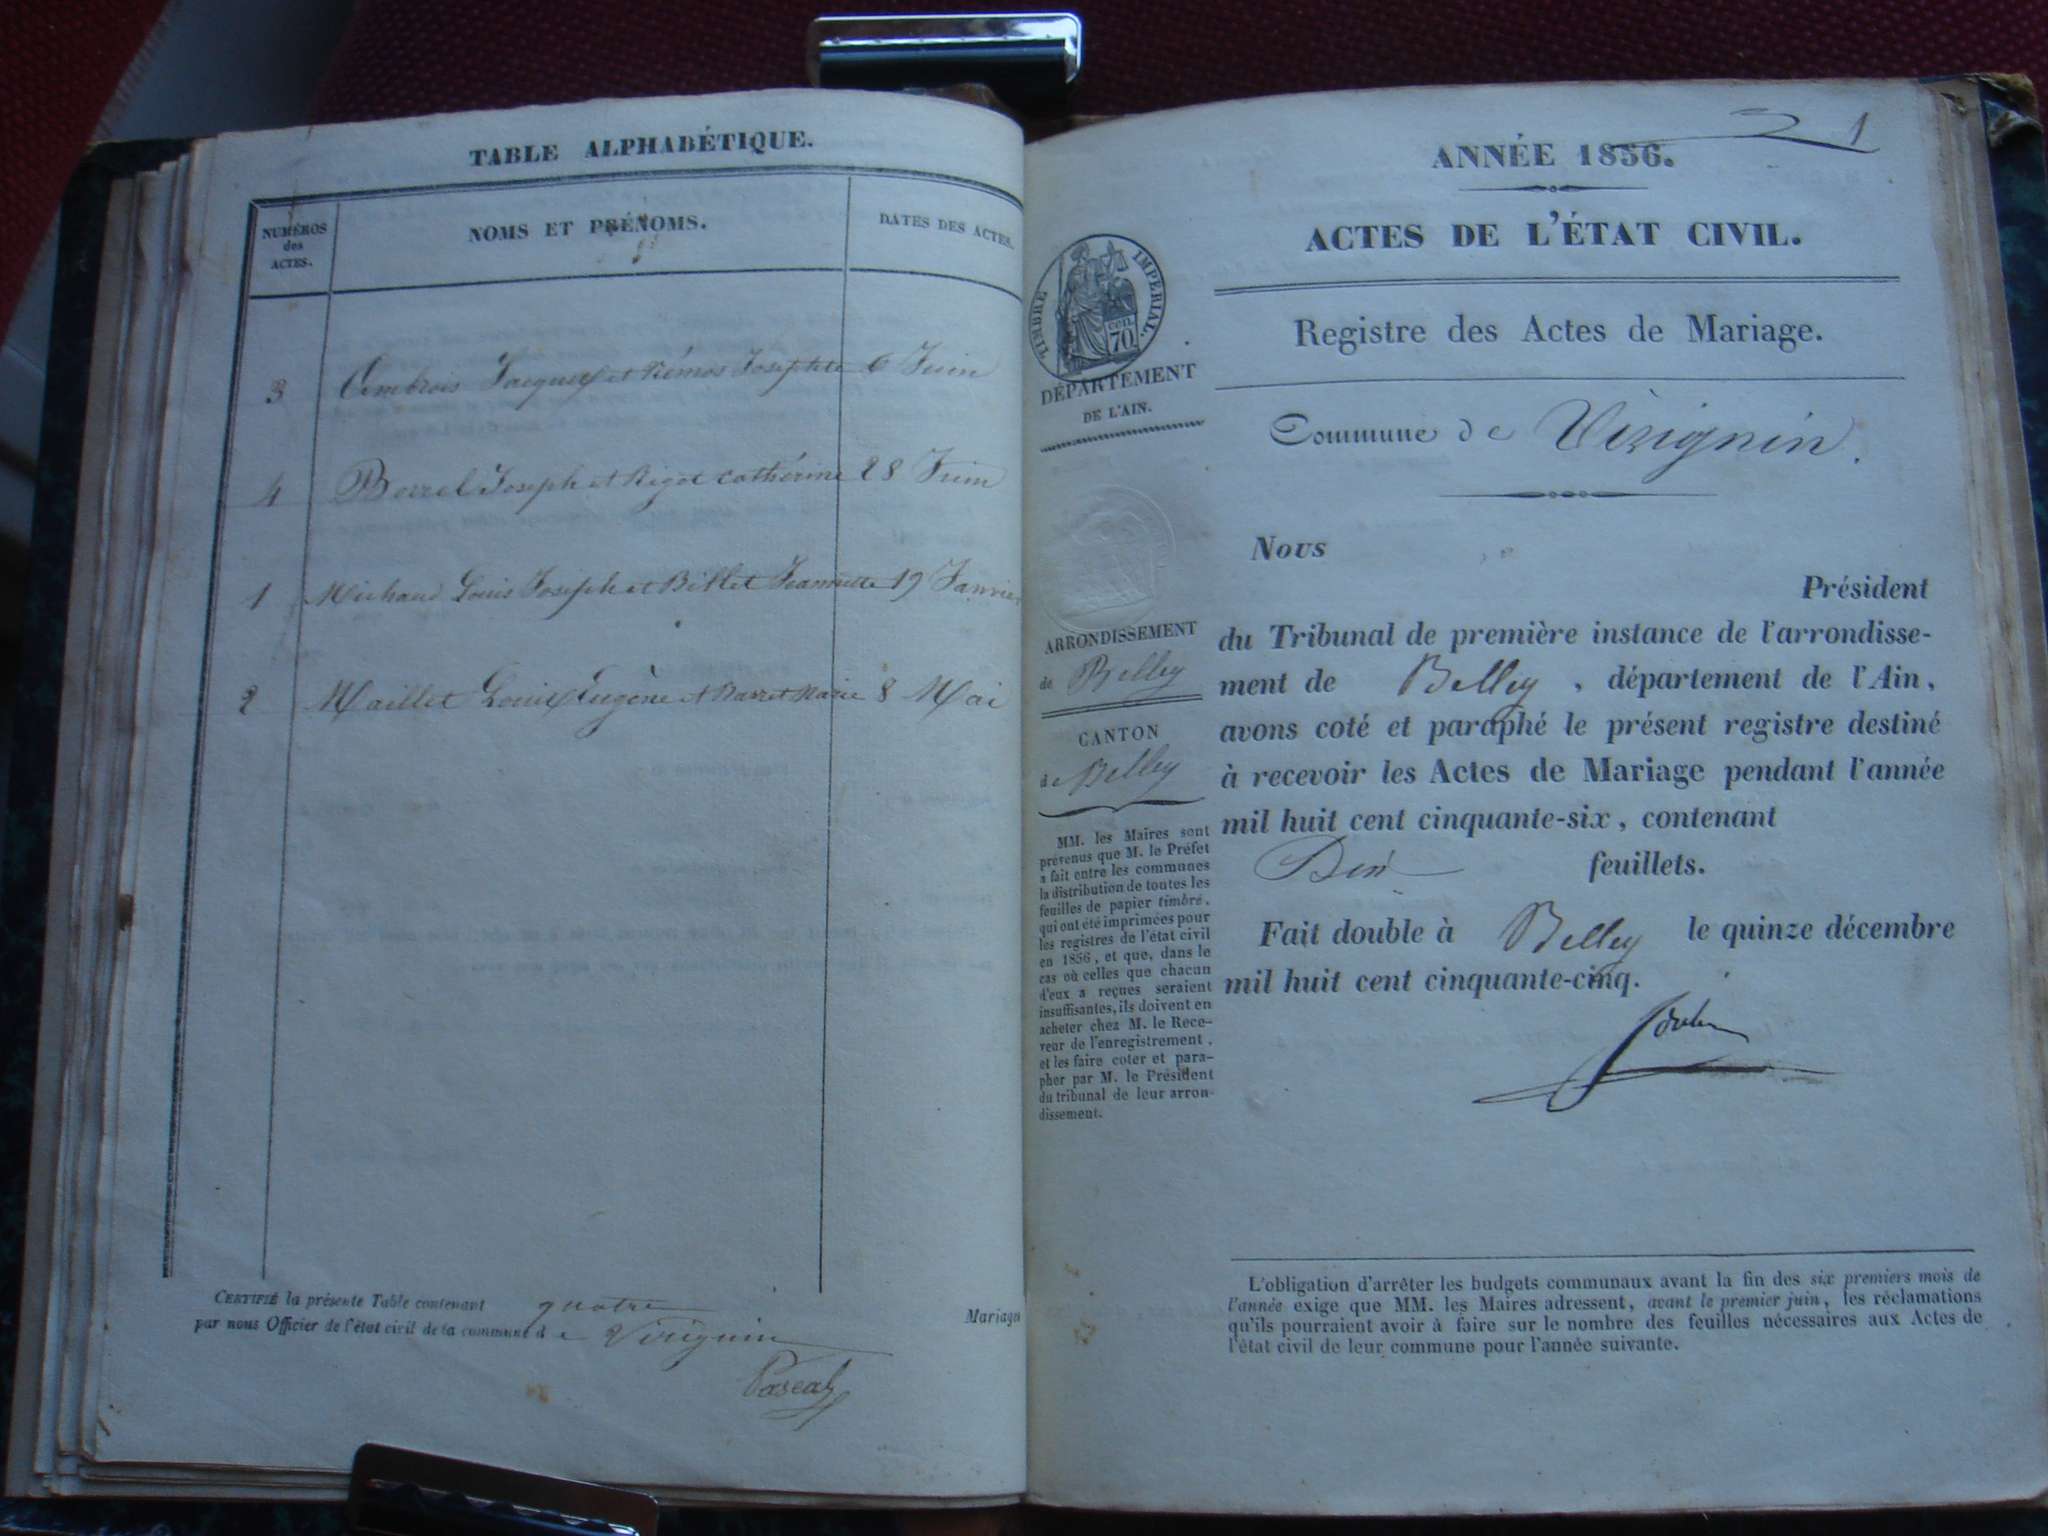 TABLE ALPHABÉTIQUE.
NUMÉROS des ACTES.
NOMS ET PRÉNOMS.
DATES DES ACTES.
3 Ambrois Jacques et Josephte 6 Juin
4 Borrel Joseph et Rigot Catherine 28 Juin
1 Michaud Louis Joseph et Billet Jeannette 19 Janvier
2 Maillet Louis Eugène et Barret Marie 8 Mai
CERTIFIÉ la présente Table contenant quatre Mariages
par nous Officier de l'état civil de la commune de Virignin
Pascal
1
ANNÉE 1856.
ACTES DE L'ÉTAT CIVIL.
Registre des Actes de Mariage.
TIMBRE IMPERIAL.
cen. 70
DÉPARTEMENT
DE L'AIN.
Commune de Virignin.
Nous
Président
du Tribunal de première instance de l'arrondisse-
ment de Belley, département de l'Ain,
avons coté et paraphé le présent registre destiné
à recevoir les Actes de Mariage pendant l'année
mil huit cent cinquante-six, contenant
feuillets.
Fait double à Belley le quinze décembre
mil huit cent cinquante-cinq.
ARRONDISSEMENT
de Belley
CANTON
de Belley
MM. les Maires sont
prévenus que M. le Préfet
a fait entre les communes
la distribution de toutes les
feuilles de papier timbré,
qui ont été imprimées pour
les registres de l'état civil
en 1856, et que, dans le
cas où celles que chacun
d'eux a reçues seraient
insuffisantes, ils doivent en
acheter chez M. le Rece-
veur de l'enregistrement,
et les faire coter et para-
pher par M. le Président
du tribunal de leur arron-
dissement.
L'obligation d'arrêter les budgets communaux avant la fin des six premiers mois de
l'année exige que MM. les Maires adressent, avant le premier juin, les réclamations
qu'ils pourraient avoir à faire sur le nombre des feuilles nécessaires aux Actes de
l'état civil de leur commune pour l'année suivante.